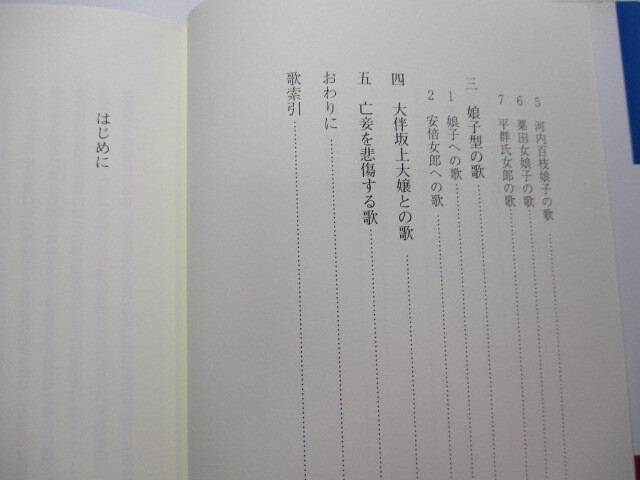 5 河内百枝娘子の歌
6 粟田女娘子の歌
7 平群氏女郎の歌
三 娘子型の歌
1 娘子への歌
2 安倍女郎への歌
四 大伴坂上大嬢との歌
五 亡妾を悲傷する歌
おわりに
歌索引
はじめに